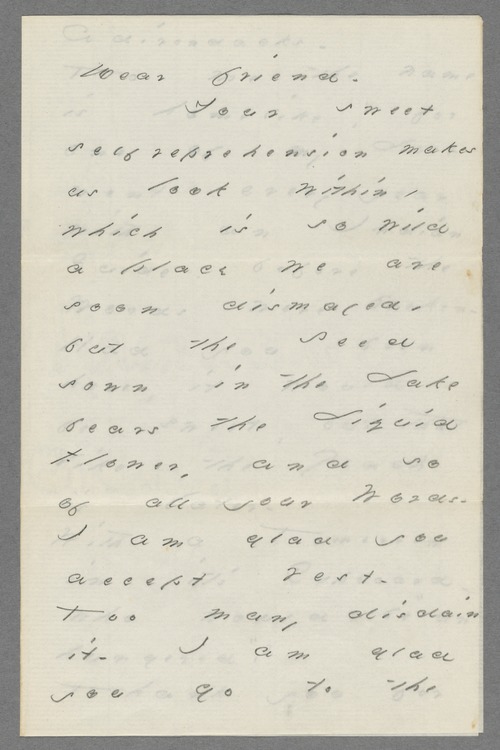 Dear friend.
Your sweet
self reprehension makes
us look within,
which is so wild
a place we are
soon dismayed,
but the Seed
sown in the Lake
bears the Liquid
Flower, and so
of all your Words.
I am glad you
accept rest.
Too many disdain
it. I am glad
you go to the